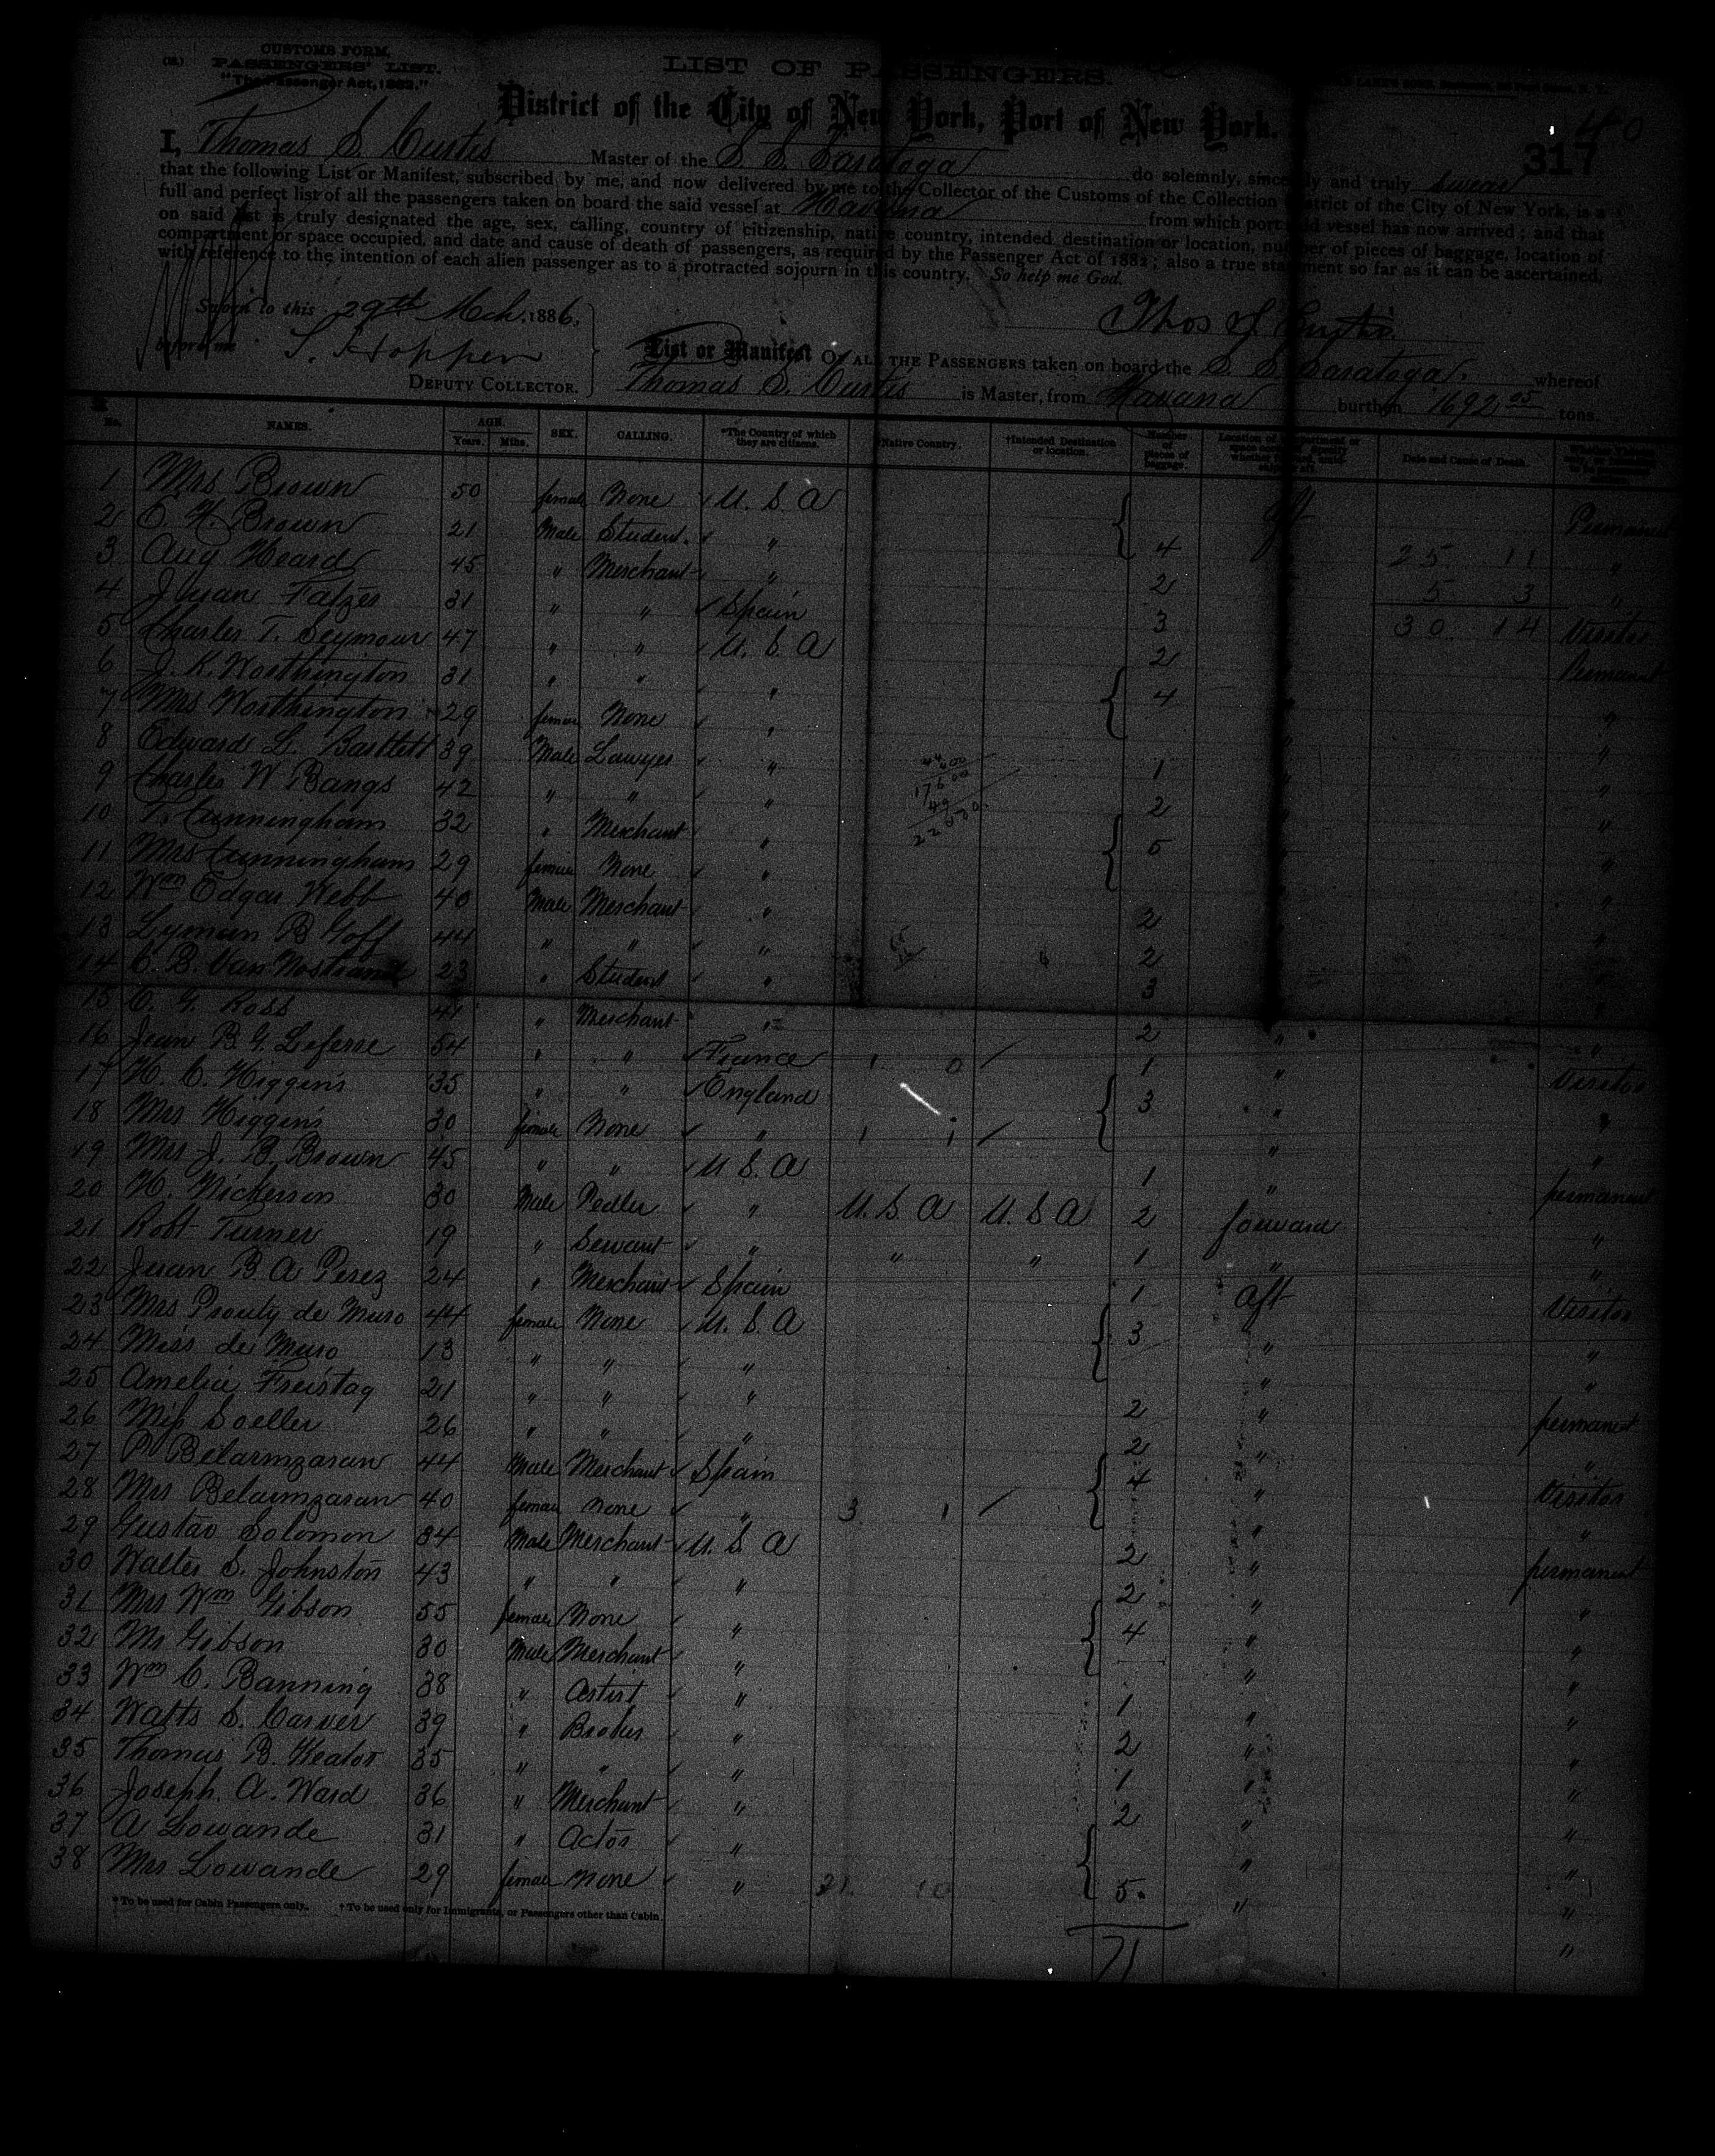 (12.) CUSTOMS FORM.
PASSENGERS' LIST.
"The Passenger Act, 1882."
LIST OF PASSENGERS.
District of the City of New York, Port of New York.
40
317
I, Thomas S. Curtis Master of the S. S. Saratoga do solemnly, sincerely and truly swear
that the following List or Manifest, subscribed by me, and now delivered by me to the Collector of the Customs of the Collection District of the City of New York, is a
full and perfect list of all the passengers taken on board the said vessel at Havana from which port said vessel has now arrived; and that
on said list is truly designated the age, sex, calling, country of citizenship, native country, intended destination or location, number of pieces of baggage, location of
compartment or space occupied, and date and cause of death of passengers, as required by the Passenger Act of 1882; also a true statement so far as it can be ascertained,
with reference to the intention of each alien passenger as to a protracted sojourn in this country. So help me God.
Sworn to this 29th Mch. 1886,
Thos S. Curtis.
before me S. Hopper
DEPUTY COLLECTOR.
List or Manifest OF ALL THE PASSENGERS taken on board the S. S. Saratoga. whereof
Thomas S. Curtis is Master, from Havana burthen 1692 05 tons.
No. NAMES. AGE. Years. Mths. SEX. CALLING. *The Country of which they are citizens. Native Country. †Intended Destination or location. Number of pieces of baggage. Date and Cause of Death.
1 Mrs Brown 50 female None U. S. A Aft Permanent
2 O. H. Brown 21 Male Student. " 4 25 11 "
3 Aug Heard 45 " Merchant " 2 5 3 "
4 Juan Fatzer 31 " " Spain 3 30 14 Visitor
5 Charles T. Seymour 47 " " U. S. A 2 " Permanent
6 J. K. Worthington 31 " " " 4 " "
7 Mrs Worthington 29 female None " " "
8 Edward L. Bartlett 39 Male Lawyer " 1 " "
9 Charles W Bangs 42 " " " 2 " "
10 T. Cunningham 32 " Merchant " 5 " "
11 Mrs Cunningham 29 female None " " "
12 Wm Edgar Webb 40 Male Merchant " 2 " "
13 Lyman B Goff 44 " " " 2 " "
14 C. B. Van Nostrand 23 " Student " 3 " "
15 C. G. Ross 41 " Merchant " 2 " "
16 Jean B. G. Leferre 54 " " France 1 0 / 1 " Visitor
17 H. C. Higgins 35 " " England 3 " "
18 Mrs Higgins 30 female None " 1 1 / " "
19 Mrs J. B. Brown 45 " " U. S. A 1 " permanent
20 H. Nickerson 30 Male Pedler " U. S. A U. S. A 2 forward "
21 Robt Turner 19 " Servant " " " 1 " "
22 Juan B. A Perez 24 " Merchant Spain 1 Aft Visitor
23 Mrs Prouty de Muro 44 female None U. S. A 3 " "
24 Miss de Muro 13 " " " " "
25 Amelia Freistag 21 " " " 2 " permanent
26 Miss Soeller 26 " " " 2 " "
27 P Belarmzaran 44 Male Merchant Spain 4 " Visitor
28 Mrs Belarmzaran 40 female none " 3 1 / " "
29 Gustav Solomon 34 Male Merchant U. S. A 2 " permanent
30 Walter S. Johnston 43 " " " 2 " "
31 Mrs Wm Gibson 55 female None " 4 " "
32 Mr Gibson 30 Male Merchant " " "
33 Wm C. Banning 38 " Artist " 1 " "
34 Watts S. Carver 39 " Broker " 2 " "
35 Thomas B. Keator 35 " " " 1 " "
36 Joseph. A. Ward 36 " Merchant " 2 " "
37 A Lowande 31 " Actor " " "
38 Mrs Lowande 29 female none " 21. 10 5. " "
* To be used for Cabin Passengers only. † To be used only for Immigrants, or Passengers other than Cabin.
71